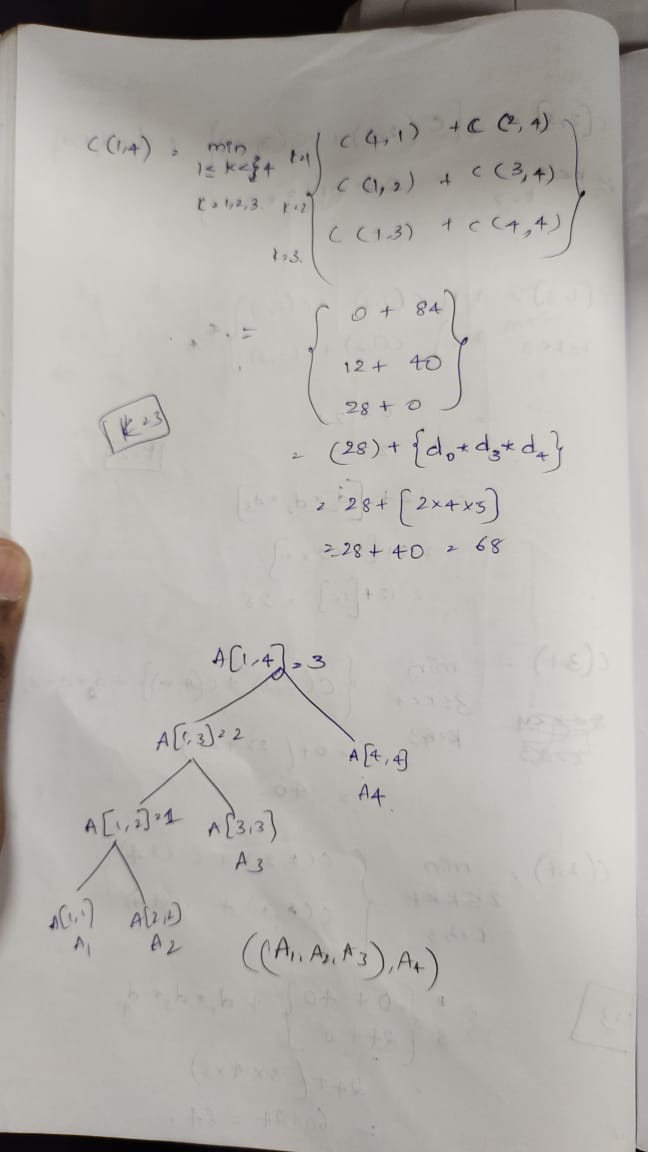 C(1,4) = min k=1 { C(1,1) + C(2,4)
1≤k<4
C(1,2) + C(3,4)
k=1,2,3. k=2
C(1,3) + C(4,4) }
k=3.
= { 0 + 84
12 + 40
28 + 0 }
k=3
= (28) + {d₀*d₃*d₄}
= 28 + [2×4×5]
= 28 + 40 = 68
A[1,4] = 3
A[1,3] = 2
A[4,4]
A4
A[1,2] = 1 A[3,3]
A3
A[1,1] A[2,2]
A1 A2
((A1, A2, A3), A4)